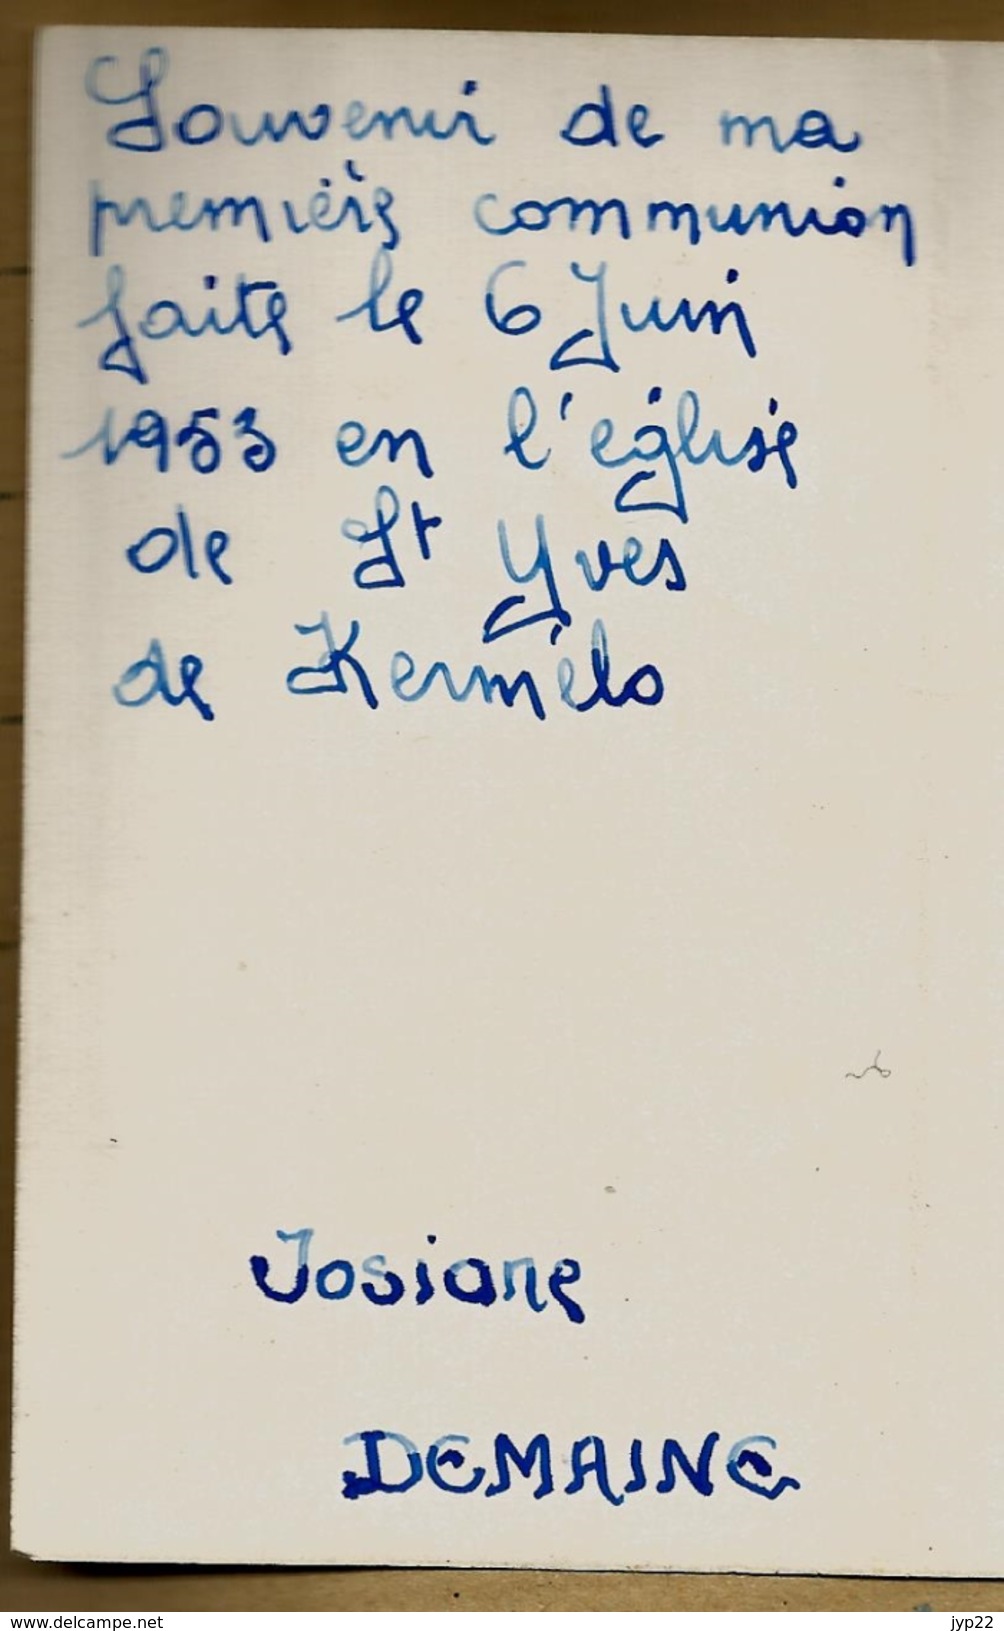 Souvenir de ma
première communion
faite le 6 Juin
1953 en l'église
de St Yves
de Kermélo
Josiane
DEMAINE
www.delcampe.net
jyp22